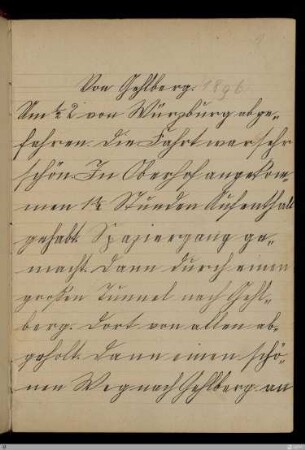 Von Gehlberg. 1896.
Um ½ 2 von Würzburg abge-
fahren. die Fahrt war sehr
schön. In Oberhof angekom-
men 1½ Stunden Aufenthalt
gehabt. Spaziergang ge-
macht. dann durch einen
großen Tunnel nach Gehl-
berg. dort von allen ab-
geholt. dann einen schö-
nen Weg nach Gehlberg. an